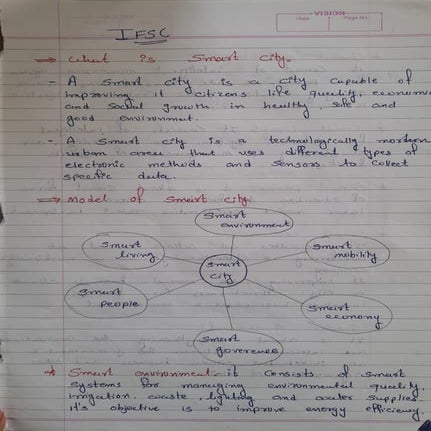 VISION
IFSC
⇒ What is Smart City.
- A Smart city is a city capable of
improving it citizens life quality, economic
and social growth in healthy safe and
good environment.
- A Smart city is a technologically mordern
urban area that uses different types of
electronic methods and sensors to collect
specific data.
⇒ Model of Smart city
Smart
environment
Smart
living
Smart
mobility
Smart
city
Smart
people
Smart
economy
Smart
goverence
* Smart environment:- it consists of smart
systems for managing environmental quality,
irrigation, waste, lighting and water supplies.
it's objective is to improve energy efficiency.